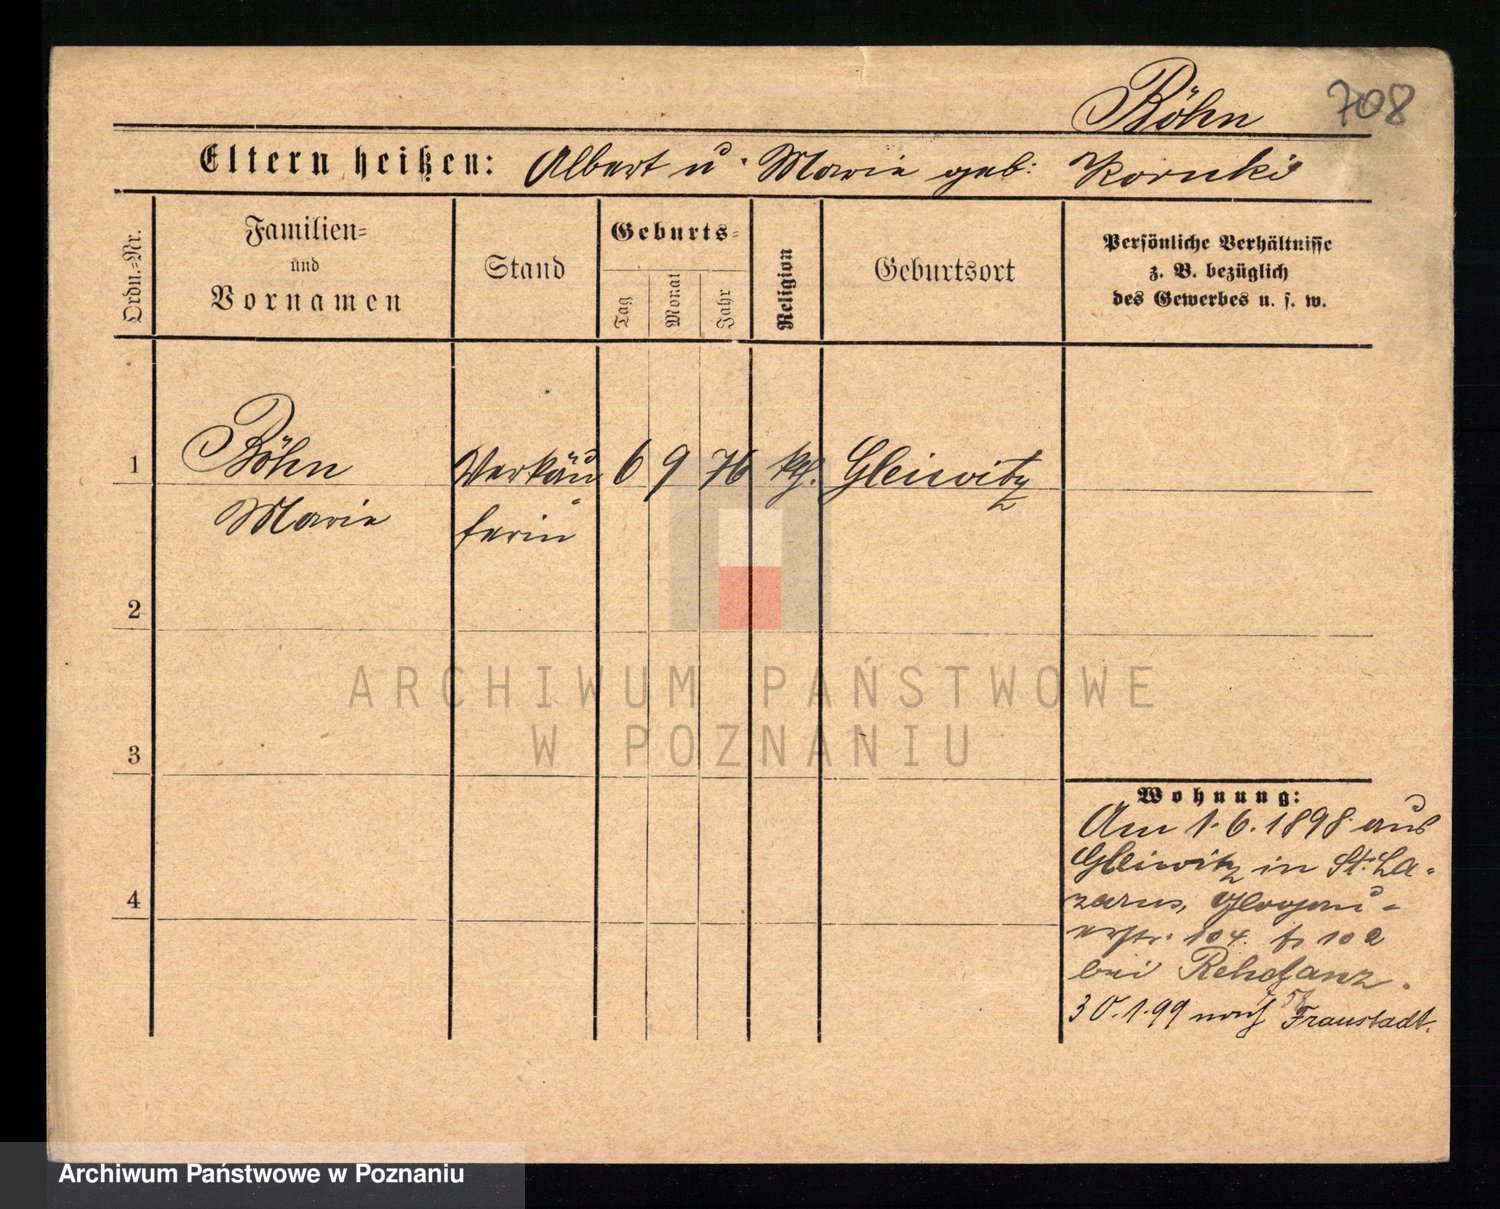 Böhn 708
Eltern heißen: Albert u. Marie geb: Kornki
Ordn.=Nr.
Familien=
und
Vornamen
Stand
Geburts=
Tag
Monat
Jahr
Religion
Geburtsort
Persönliche Verhältnisse
z. B. bezüglich
des Gewerbes u. s. w.
1 Böhn Verkäu 6 9 76 kth. Gleiwitz
Marie ferin
2
3
4
Wohnung:
Am 1.6.1898 aus
Gleiwitz in St. La-
zarus, Glogau-
erstr. 104. 102
bei
30.1.99 nach Fraustadt.
ARCHIWUM PAŃSTWOWE
W POZNANIU
Archiwum Państwowe w Poznaniu